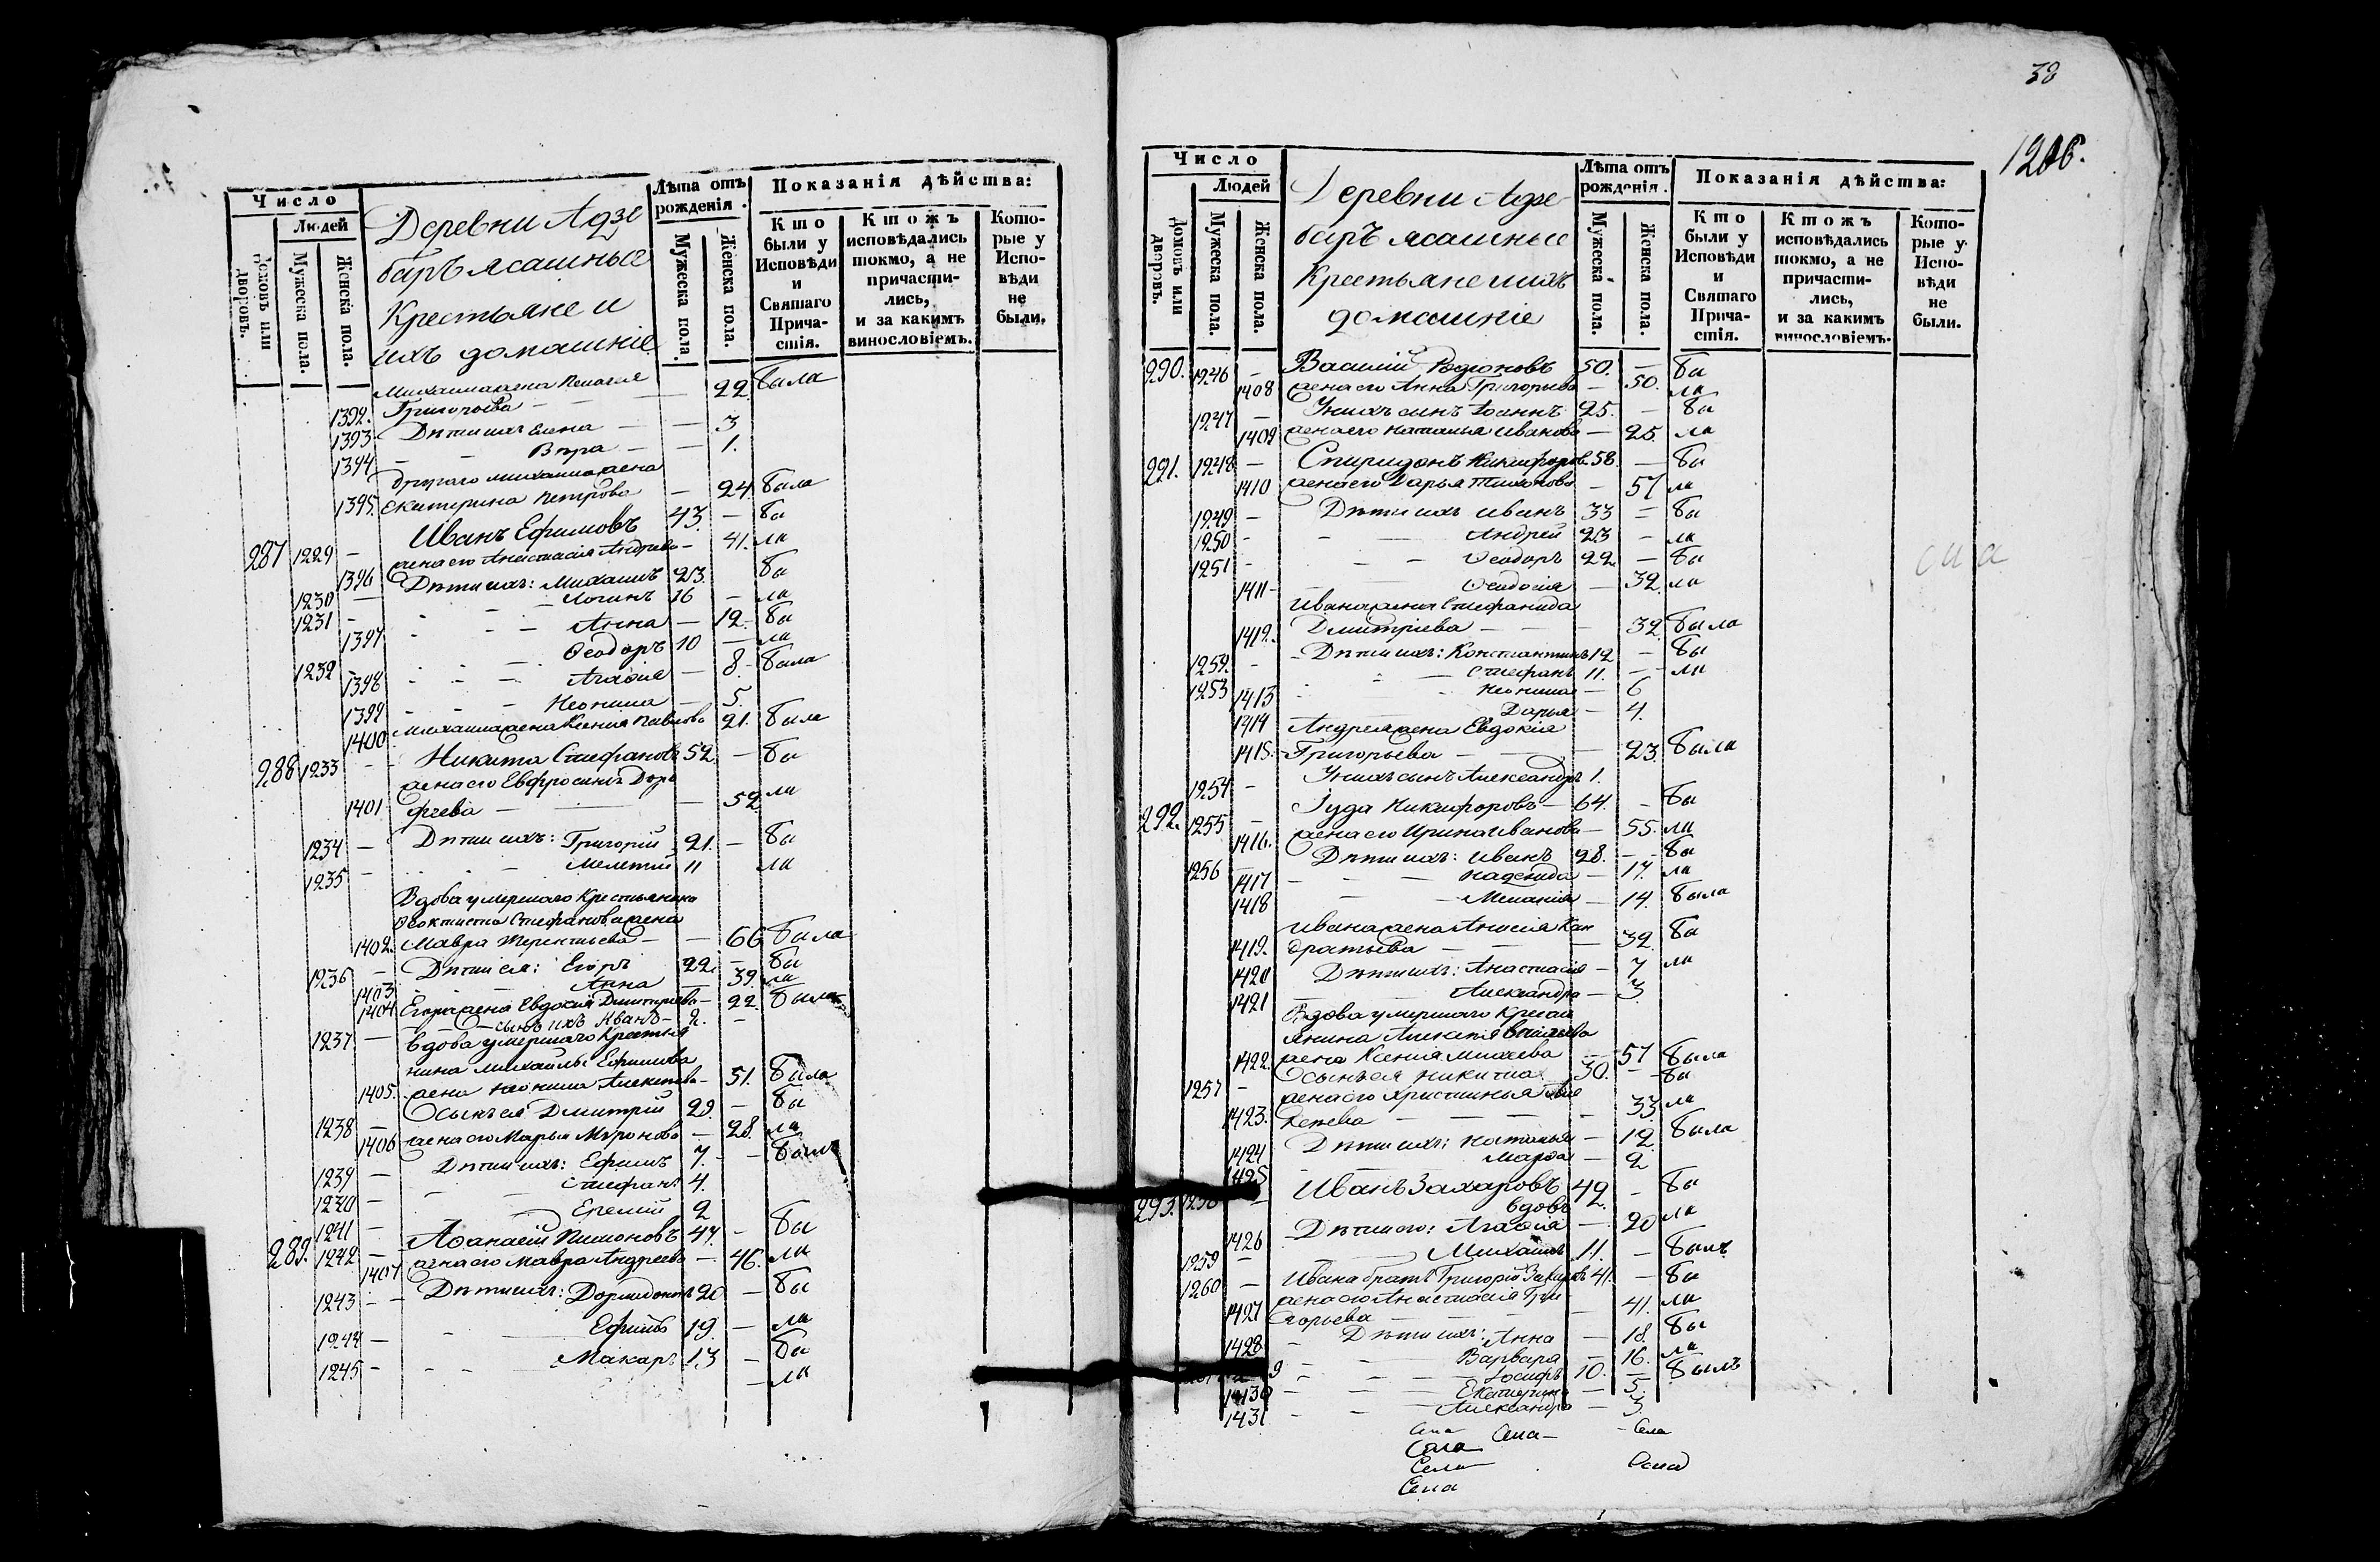 Число
Людей
Домовъ или дворовъ.
Мужеска пола.
Женска пола.
Деревни Адзе
баръ ясашныя
Крестьяне и
ихъ домашніе
Лѣта отъ рожденія.
Мужеска пола.
Женска пола.
Показанія дѣйства:
Кто были у Исповѣди и Святаго Причастія.
Ктожъ исповѣдались токмо, а не причастились, и за какимъ винословіемъ.
Которые у Исповѣди не были.
Михаила жена Пелагея
1392. Григорьева — — 22 была
1393 Дѣти ихъ Елена — — 3
1394 — Вѣра — — 1.
другаго Михаила жена
1395. Екатерина Петрова — 24 была
287 1229 — Иванъ Ефимовъ 43. — бы
1396 жена его Анастасія Андреева — 41. ли
1230 — Дѣти ихъ: Михаилъ 23. бы
1231 — Логинъ 16 — ли
1397 — Анна — 12. бы
1232 — Ѳеодоръ 10 — ли
1398 — Агафія — 8. была
1399 — Неонила — 5.
1400 Михаила жена Ксенія Павлова 21. была
288 1233 — Никита Стефановъ 52. — бы
жена его Евфросинья Доро
1401 феева — — 52 ли
1234 — Дѣти ихъ: Григорій 21. — бы
1235 — Мелетій 11 ли
Вдова умершаго Крестьянина
Ѳеоктиста Стефанова жена
1402. Мавра Терентьева — — 66 была
1236 — Дѣти ея: Егоръ 22. — бы
1403 — Анна — 39. ли
1404 Егора жена Евдокія Дмитріева — 22. была
1237 — сынъ ихъ Иванъ — 2. —
вдова умершаго Крестья
нина Михаила Ефимова
1405. жена Неонила Алексеева — 51. была
1238 — Сынъ ея Дмитрій 29. — бы
1406 жена его Марья Миронова — 28. ли
1239 — Дѣти ихъ: Ефимъ 7. — былъ
1240 — Стефанъ 4.
1241 — Еремій 2
289. 1242 — Афанасій Пимоновъ 47. — бы
1407 жена его Мавра Андреева — 46. ли
1243 — Дѣти ихъ: Дормидонтъ 20 — бы
1244 — Ефимъ 19. — ли
1245 — Макаръ 13 — бы
— ли
38
1206.
Число
Людей
Домовъ или дворовъ.
Мужеска пола.
Женска пола.
Деревни Адзе
баръ ясашные
Крестьяне и ихъ
домашніе
Лѣта отъ рожденія.
Мужеска пола.
Женска пола.
Показанія дѣйства:
Кто были у Исповѣди и Святаго Причастія.
Ктожъ исповѣдались токмо, а не причастились, и за какимъ винословіемъ.
Которые у Исповѣди не были.
290. 1246 — Василій Родіоновъ 50. — бы
1408 жена его Анна Григорьева — 50. ли
1247 — У нихъ сынъ Іоаннъ 25. — бы
1409 жена его Наталья Иванова — 25. ли
291. 1248 — Спиридонъ Никифоровъ 58. — бы
1410 жена его Дарья Тихонова — 57 ли
1249 — Дѣти ихъ Иванъ 33 — бы
1250 — Андрей 23 — ли
1251 — Ѳеодоръ 22 — бы
1411 — Ѳеодосія — 32. ли
Ивана жена Стефанида
1412. Дмитріева — — 32. была
1252. — Дѣти ихъ: Константинъ 12 — бы
1253 — Стефанъ 11. — ли
1413 — Неонила — 6
1414 — Дарья — 4.
Андрея жена Евдокія
1415. Григорьева — — 23. была
1254 — У нихъ сынъ Александръ 1.
292. 1255 — Іуда Никифоровъ — 64. — бы
1416. жена его Ирина Иванова — 55. ли
1256 — Дѣти ихъ: Иванъ 28. — бы
1417 — Надежда — 17. ли
1418 — Меланія — 14. была
Ивана жена Анисія Кон
1419. дратьева — — 32. бы
1420 Дѣти ихъ: Анастасія — 7 ли
1421 — Александра — 3.
Вдова умершаго Кресть
янина Алексея Васильева
1422. жена Ксенія Михеева — 57 была
1257 — Сынъ ея Никита 30. — бы
жена его Христинья
1423. — — 33 ли
1424 Дѣти ихъ: Наталья — 12 была
1425 Марфа — 2
293. 1258 — Иванъ Захаровъ 42. — бы
вдовъ
1426 Дѣти его: Агафія — 20 ли
1259 — Михаилъ 11. — былъ
1260 — Ивана братъ Григорій Захаровъ 41. — бы
жена его Анастасія Гри
1427 горьева — — 41. ли
1428 Дѣти ихъ: Анна — 18. бы
Варвара — 16. ли
Іосифъ 10. — былъ
1430 — Екатерина — 5.
1431 — Александра — 3.
Сила Сила — Села
Сила
Села
Сила
сила